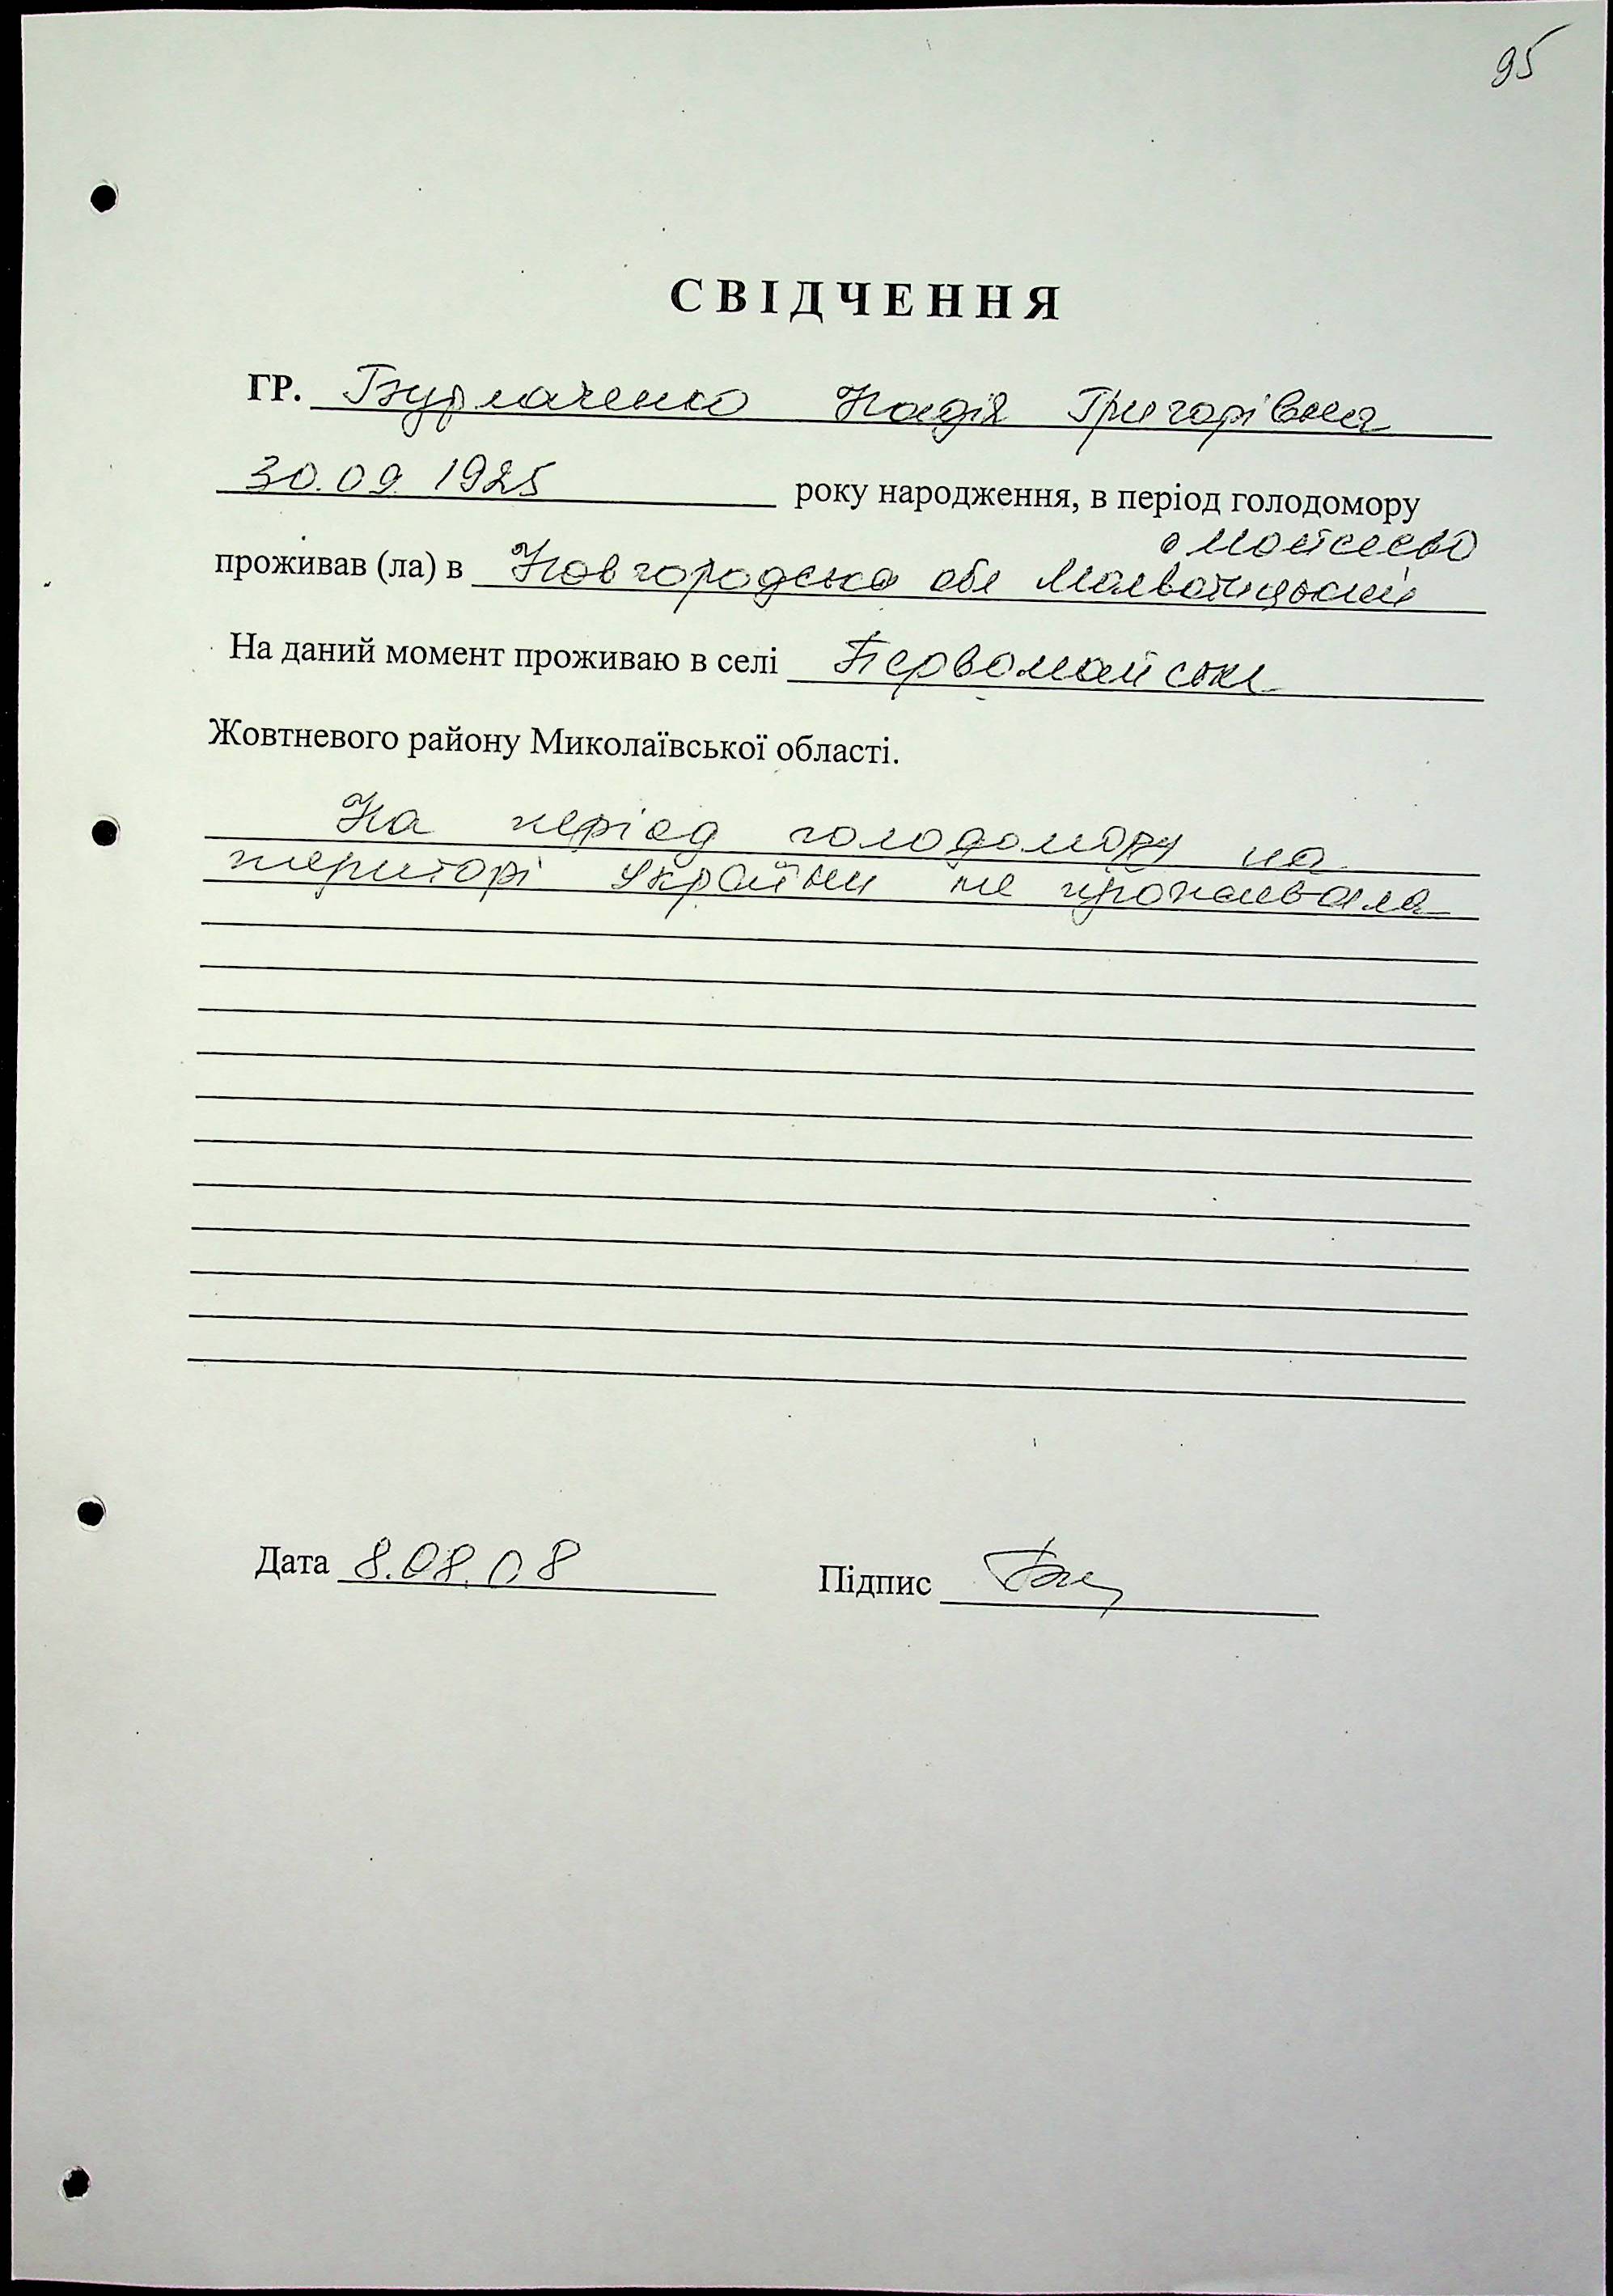 95
СВІДЧЕННЯ
ГР. Бурлаченко Надія Григорівна
30.09.1925 року народження, в період голодомору
с Мойсеево
проживав (ла) в Новгородська обл Молвотицький
На даний момент проживаю в селі Первомайськ
Жовтневого району Миколаївської області.
На період голодомору на
територі України не проживала
Дата 8.08.08 Підпис